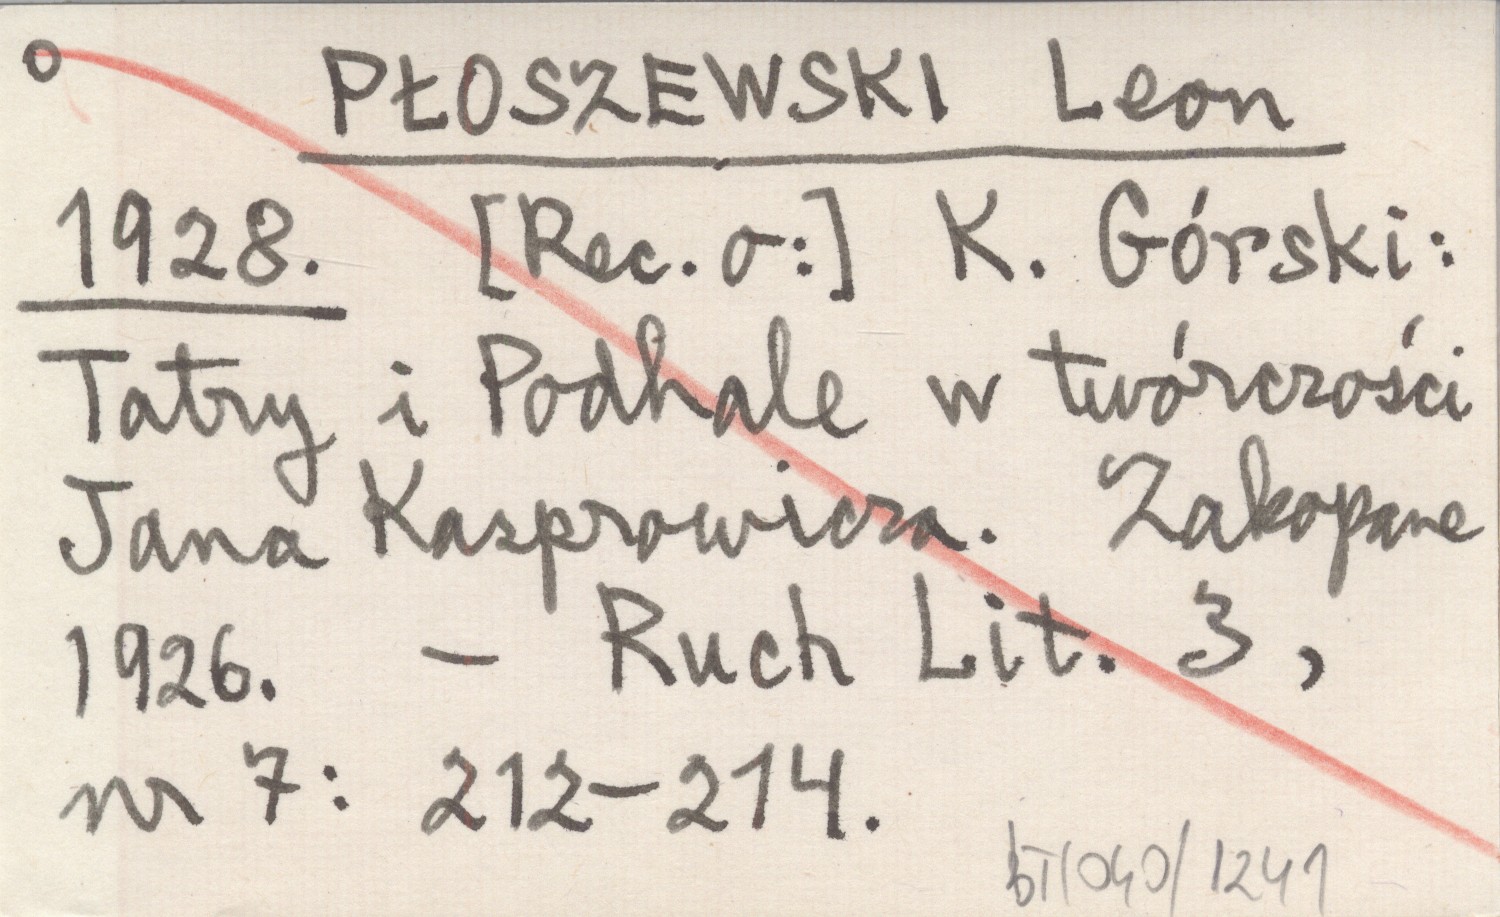 PŁOSZEWSKI Leon
1928. [Rec. o:] K. Górski:
Tatry i Podhale w twórczości
Jana Kasprowicza. Zakopane
1926. – Ruch Lit. 3,
nr 7: 212–214.
1241